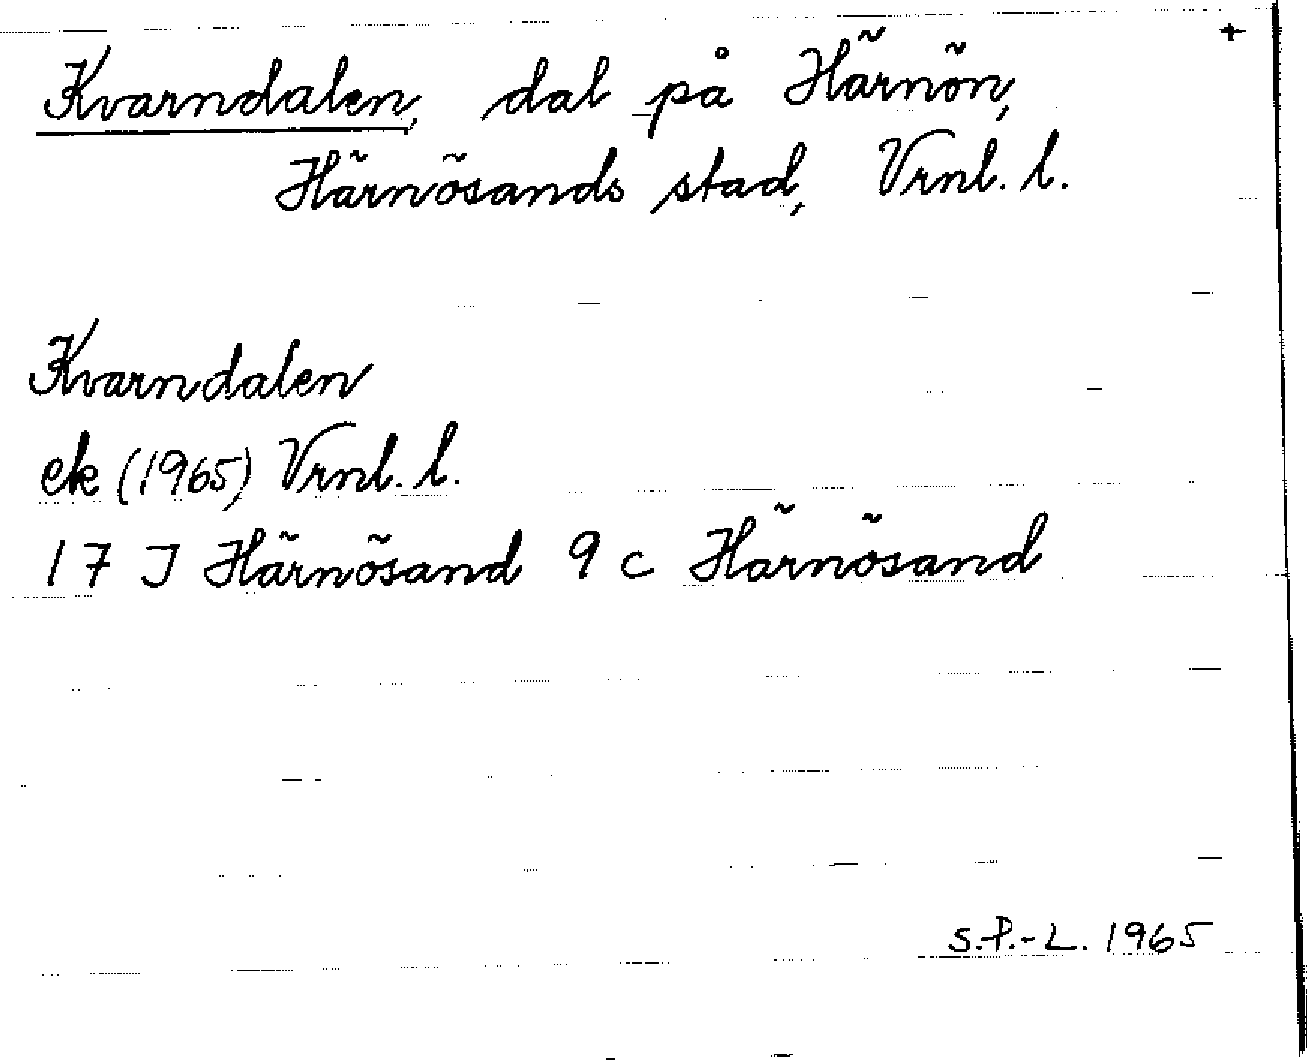 +
Kvarndalen, dal på Härnön,
Härnösands stad, Vrnl. l.
Kvarndalen
ek (1965) Vrnl. l.
17 J Härnösand 9 c Härnösand
S.P.-L. 1965